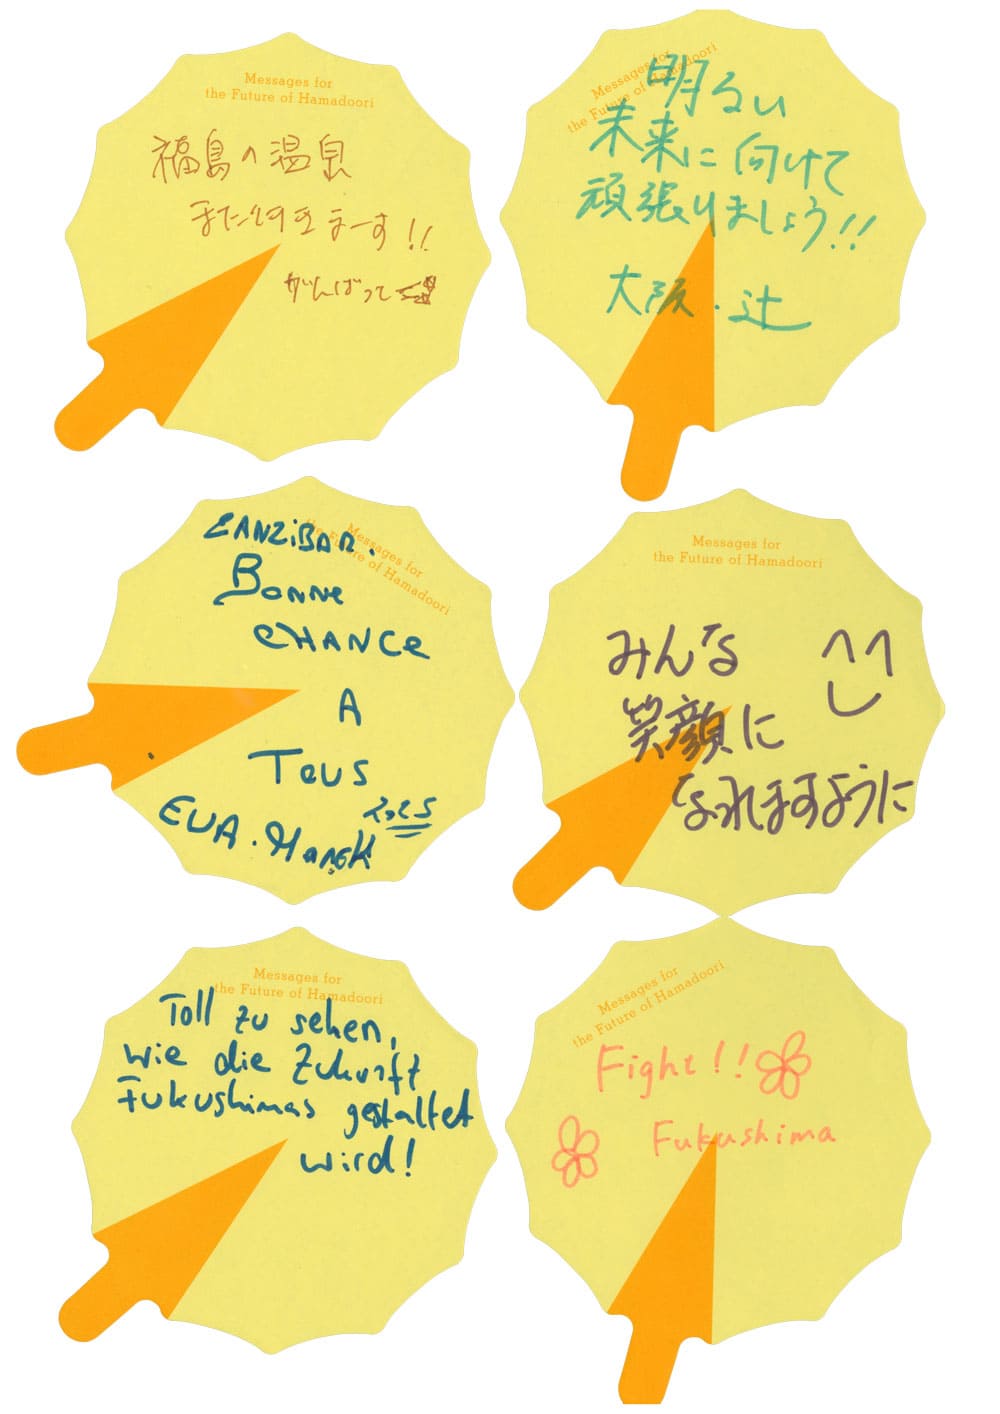 Messages for
the Future of Hamadoori
福島へ温泉
また行きまーす!!
がんばって
Messages for
the Future of Hamadoori
明るい
未来に向けて
頑張りましょう!!
大阪・辻
Messages for
the Future of Hamadoori
ZANZiBAR.
BONNE
CHANCE
A
TOUS
2025
EVA.
Messages for
the Future of Hamadoori
みんな
笑顔に
なれますように
Messages for
the Future of Hamadoori
Toll zu sehen,
wie die Zukunft
Fukushimas gestaltet
wird!
Messages for
the Future of Hamadoori
Fight!!
Fukushima